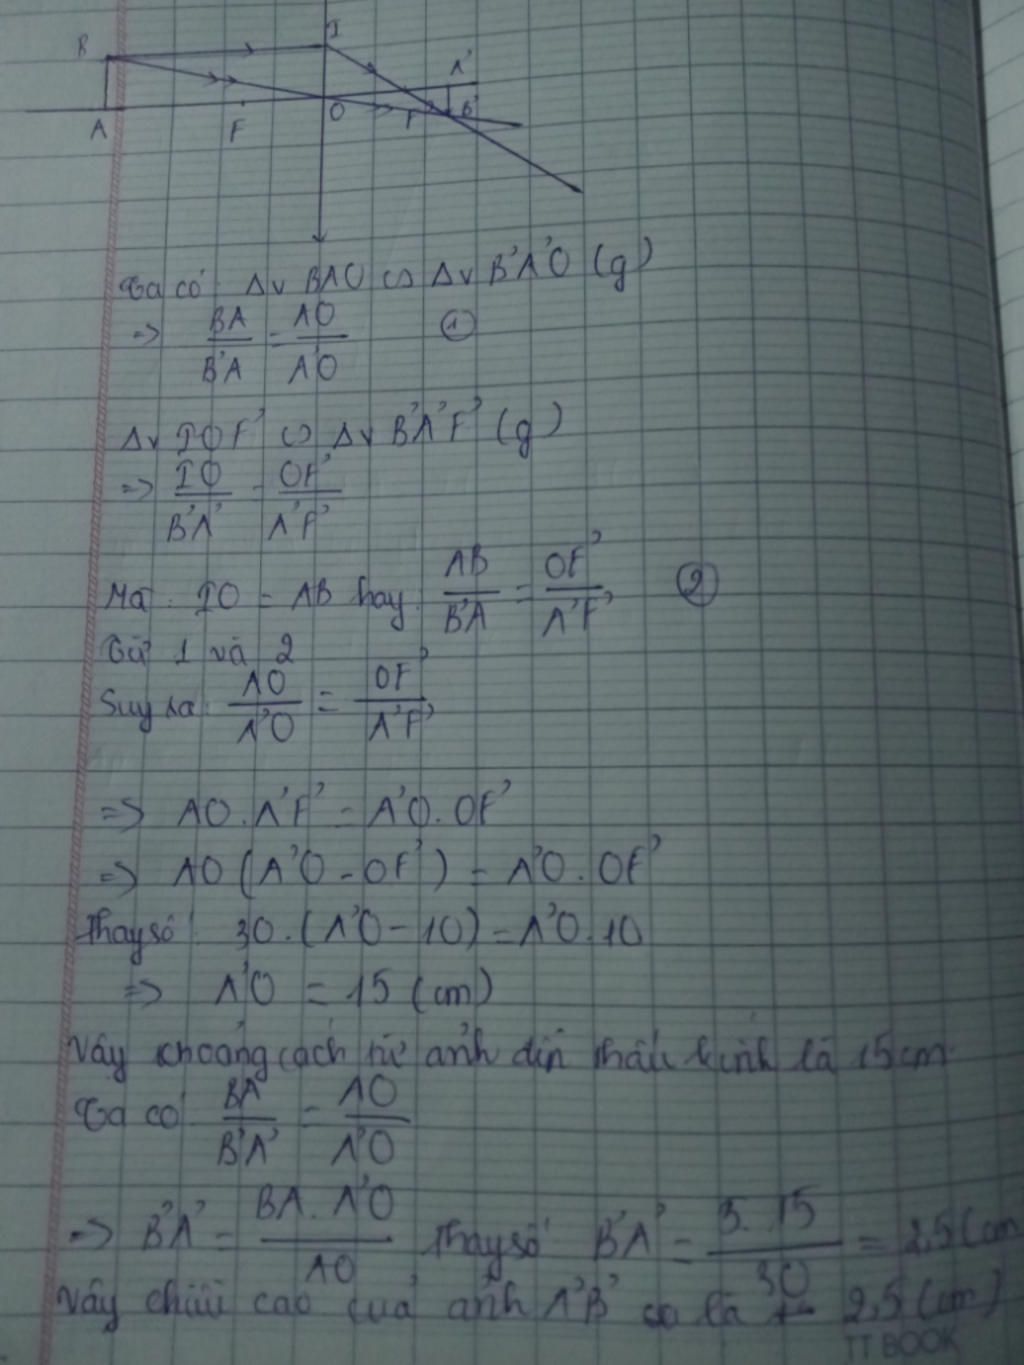 B I A'
A F O F' B'
Ta có: Δv BAO ∽ Δv B'A'O (g)
=> BA/B'A = AO/A'O (1)
Δv IOF' ∽ Δv B'A'F' (g)
=> IO/B'A' = OF'/A'F'
Mà: IO = AB hay: AB/B'A = OF'/A'F' (2)
Từ 1 và 2
Suy ra: AO/A'O = OF'/A'F'
=> AO.A'F' = A'O.OF'
=> AO(A'O - OF') = A'O.OF'
Thay số: 30.(A'O - 10) = A'O.10
=> A'O = 15 (cm)
Vậy khoảng cách từ ảnh đến thấu kính là 15cm
Ta có: BA/B'A' = AO/A'O
=> B'A' = BA.A'O/AO Thay số B'A' = 5.15/30 = 2,5 (cm
Vậy chiều cao của ảnh A'B' là 2,5 (cm)
TT BOOK